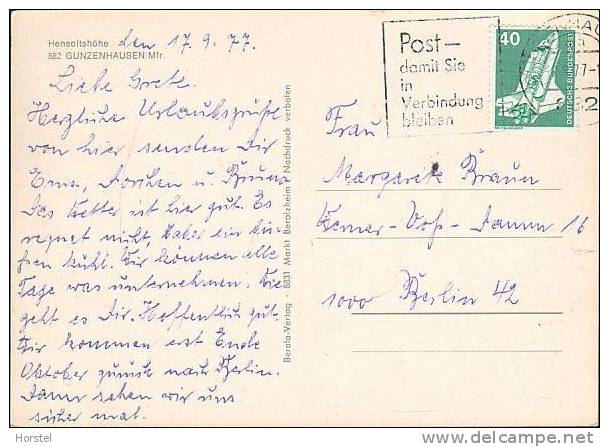 Hensoltshöhe
882 GUNZENHAUSEN/Mfr.
den 17.9.77.
Liebe Grete.
Herzliche Urlaubsgrüße
von hier senden Dir
Erna, Dorchen u. Bruno
Das Wetter ist hier gut. Es
regnet nicht, Aber ein bis-
schen kühl. Wir können alle
Tage was unternehmen. Wie
geht es Dir. Hoffentlich gut.
Wir kommen erst Ende
Oktober zurück nach Berlin.
Dann sehen wir uns
sicher mal.
Berola-Verlag - 8831 Markt Berolzheim - Nachdruck verboten
Post-
damit Sie
in
Verbindung
bleiben
40
DEUTSCHE BUNDESPOST
Frau
Margarete Braun
Werner-Voß-Damm 16
1000 Berlin 42
Horstel
delcampe.net